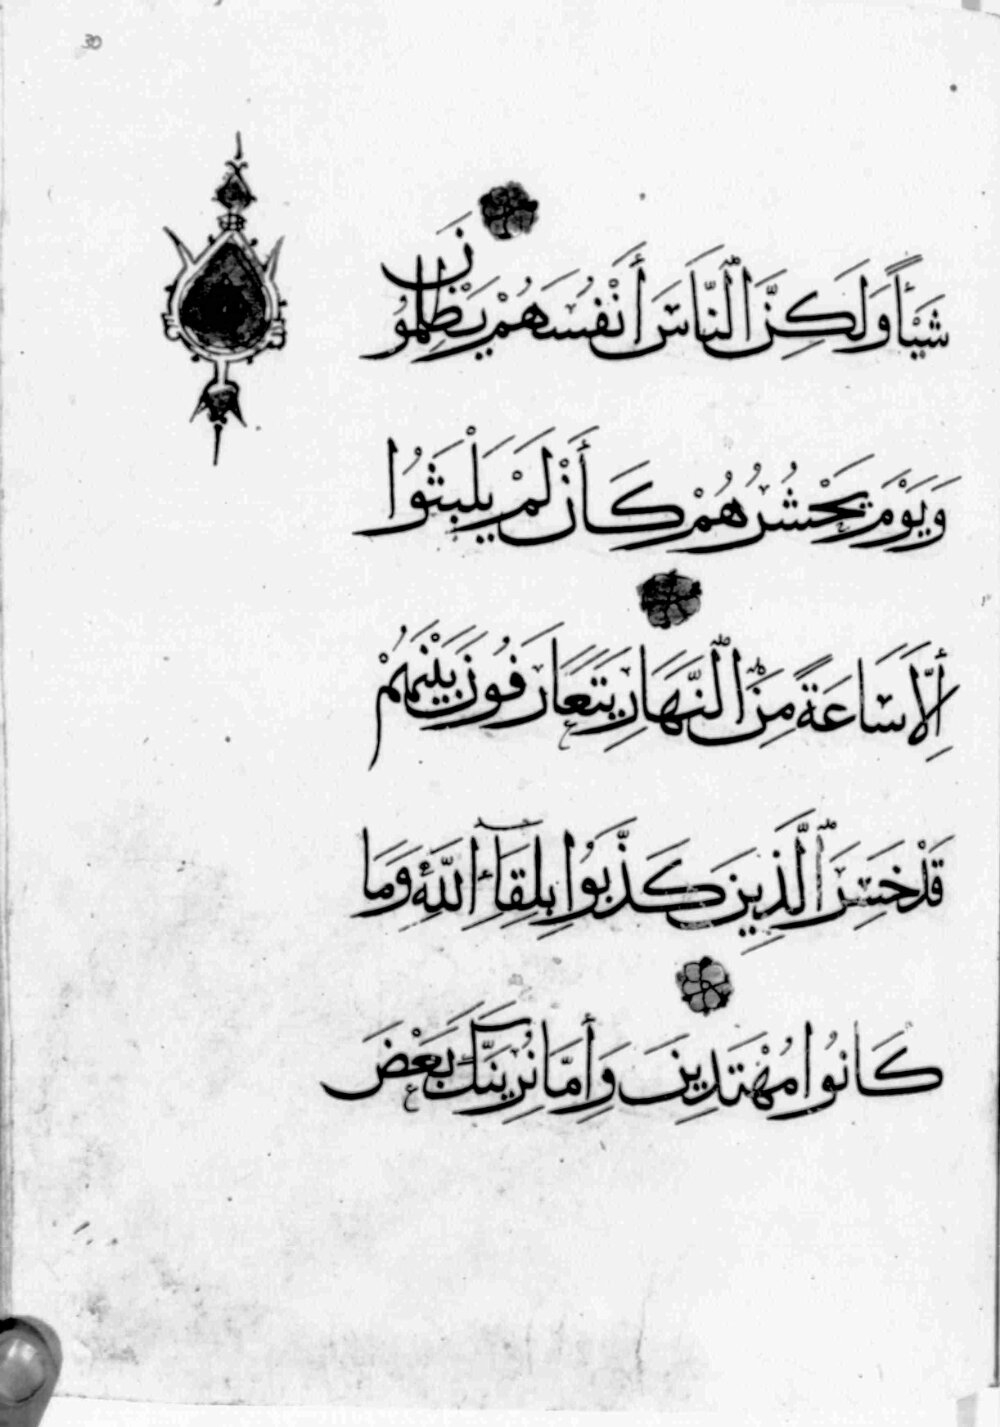 30
شَيْأً وَلَكِنَّ ٱلنَّاسَ أَنْفُسَهُمْ يَظْلِمُونَ
وَيَوْمَ يَحْشُرُهُمْ كَأَنْ لَمْ يَلْبَثُوا
إِلَّا سَاعَةً مِنَ ٱلنَّهَارِ يَتَعَارَفُونَ بَيْنَهُمْ
قَدْ خَسِرَ ٱلَّذِينَ كَذَّبُوا بِلِقَآءِ اللَّهِ وَمَا
كَانُوا مُهْتَدِينَ وَإِمَّا نُرِيَنَّكَ بَعْضَ